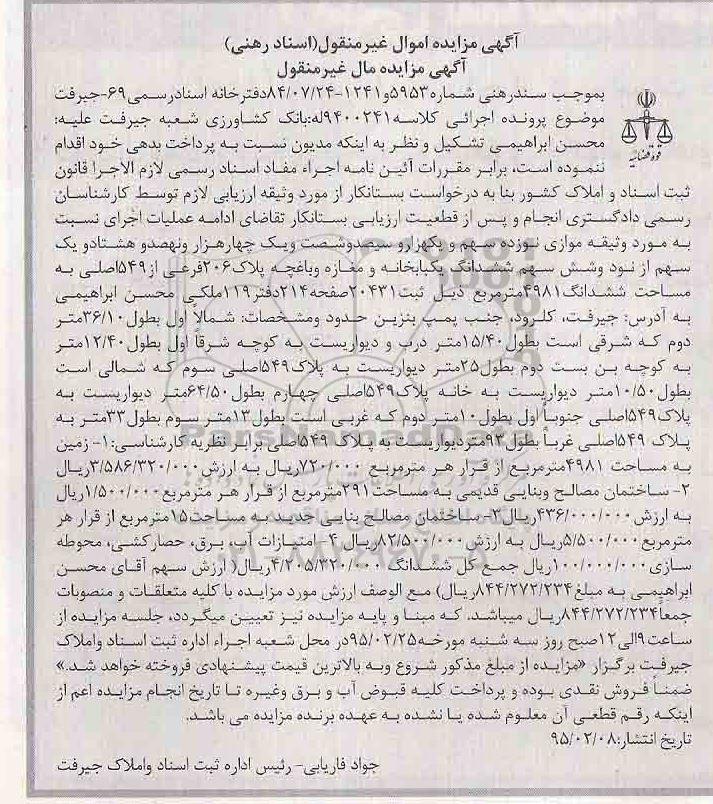 آگهی مزایده اموال غیرمنقول(اسناد رهنی)
آگهی مزایده مال غیرمنقول
بموجب سندرهنی شماره۵۹۵۳و۱۲۴۱-۸۴/۰۷/۲۴دفترخانه اسنادرسمی۶۹-جیرفت
موضوع پرونده اجرائی کلاسه۹۴۰۰۲۴۱له:بانک کشاورزی شعبه جیرفت علیه:
محسن ابراهیمی تشکیل و نظر به اینکه مدیون نسبت به پرداخت بدهی خود اقدام
قوه قضائیه
ننموده است، برابر مقررات آئین نامه اجراء مفاد اسناد رسمی لازم الاجرا قانون
ثبت اسناد و املاک کشور بنا به درخواست بستانکار از مورد وثیقه ارزیابی لازم توسط کارشناسان
رسمی دادگستری انجام و پس از قطعیت ارزیابی بستانکار تقاضای ادامه عملیات اجرای نسبت
به مورد وثیقه موازی نوزده سهم و یکهزارو سیصدوشصت ویک چهارهزار ونهصدو هشتادو یک
سهم از نود وشش سهم ششدانگ یکبابخانه و مغازه وباغچه پلاک۲۰۶فرعی از۵۴۹اصلی به
مساحت ششدانگ۴۹۸۱مترمربع ذیل ثبت۲۰۴۳۱صفحه۲۱۴دفتر۱۱۹ملکی محسن ابراهیمی
به آدرس: جیرفت، کلرود، جنب پمپ بنزین حدود ومشخصات: شمالاً اول بطول۳۶/۱۰متر
دوم که شرقی است بطول۱۵/۴۰متر درب و دیواریست به کوچه شرقاً اول بطول۱۲/۴۰متر
به کوچه بن بست دوم بطول۲۵متر دیواریست به پلاک۵۴۹اصلی سوم که شمالی است
بطول۱۰/۵۰متر دیواریست به خانه پلاک۵۴۹اصلی چهارم بطول۶۴/۵۰متر دیواریست به
پلاک۵۴۹اصلی جنوباً اول بطول۱۰متر دوم که غربی است بطول۱۳متر سوم بطول۳۳متر به
پلاک ۵۴۹اصلی غرباً بطول۹۳متردیواریست به پلاک ۵۴۹اصلی برابر نظریه کارشناسی:۱- زمین
به مساحت ۴۹۸۱مترمربع از قرار هر مترمربع ۷۲۰/۰۰۰ریال به ارزش۳/۵۸۶/۳۲۰/۰۰۰ریال
۲- ساختمان مصالح وبنایی قدیمی به مساحت۲۹۱مترمربع از قرار هر مترمربع۱/۵۰۰/۰۰۰ریال
به ارزش ۴۳۶/۰۰۰/۰۰۰ریال۳- ساختمان مصالح بنایی جدید به مساحت۱۵مترمربع از قرار هر
مترمربع۵/۵۰۰/۰۰۰ریال به ارزش ۸۲/۵۰۰/۰۰۰ریال ۴- امتیازات آب، برق، حصارکشی، محوطه
سازی۱۰۰/۰۰۰/۰۰۰ریال جمع کل ششدانگ ۴/۲۰۵/۳۲۰/۰۰۰ریال( ارزش سهم آقای محسن
ابراهیمی به مبلغ۸۴۴/۲۷۲/۲۳۴ریال) مع الوصف ارزش مورد مزایده با کلیه متعلقات و منصوبات
جمعاً۸۴۴/۲۷۲/۲۳۴ریال میباشد. که مبنا و پایه مزایده نیز تعیین میگردد، جلسه مزایده از
ساعت۹الی۱۲صبح روز سه شنبه مورخه۹۵/۰۲/۲۵در محل شعبه اجراء اداره ثبت اسناد واملاک
جیرفت برگزار «مزایده از مبلغ مذکور شروع وبه بالاترین قیمت پیشنهادی فروخته خواهد شد.»
ضمناً فروش نقدی بوده و پرداخت کلیه قبوض آب و برق وغیره تا تاریخ انجام مزایده اعم از
اینکه رقم قطعی آن معلوم شده یا نشده به عهده برنده مزایده می باشد.
تاریخ انتشار:۹۵/۰۲/۰۸
جواد فاریابی- رئیس اداره ثبت اسناد واملاک جیرفت